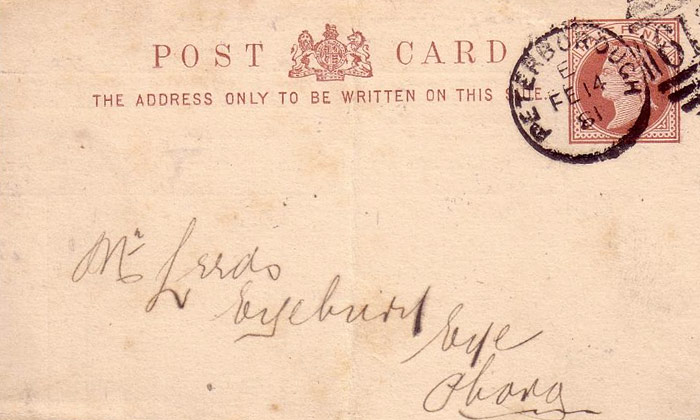 POST CARD
THE ADDRESS ONLY TO BE WRITTEN ON THIS SIDE.
PETERBOROUGH
E
FE 14
81
Mr Leeds
Eyebury
Eye
Pboro